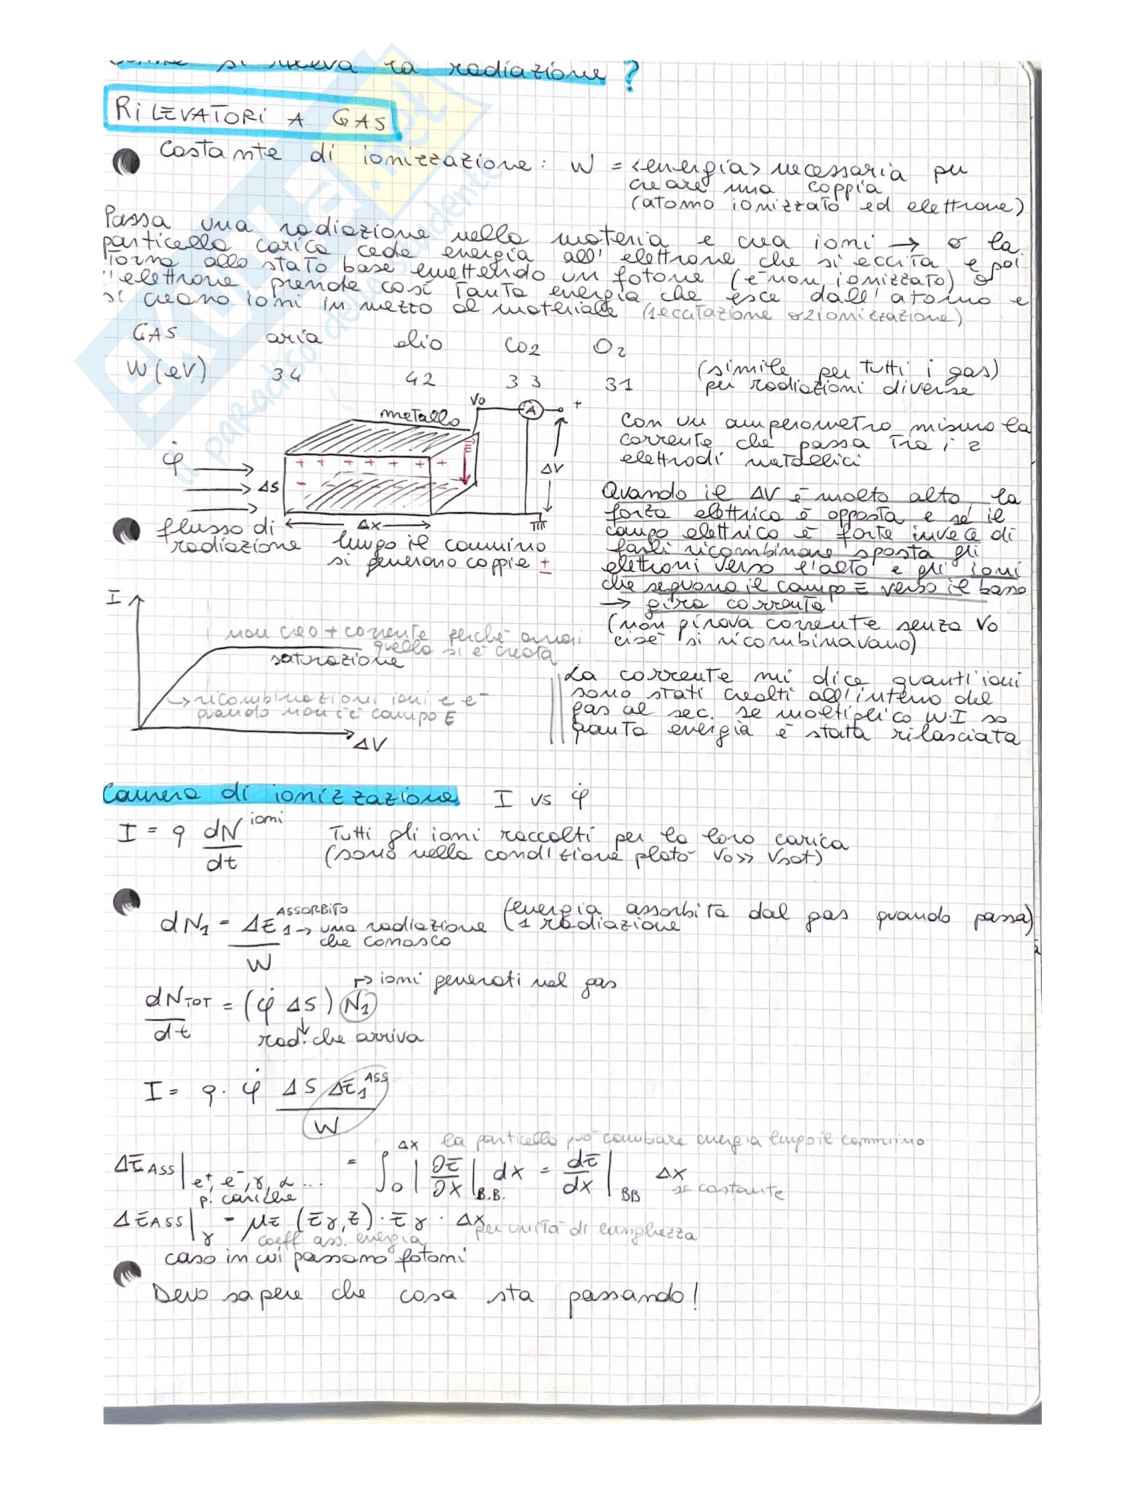 Come si rileva la radiazione ?
RILEVATORI A GAS
Costante di ionizzazione: W = <energia> necessaria per
creare una coppia
(atomo ionizzato ed elettrone)
Passa una radiazione nella materia e crea ioni → o la
particella carica cede energia all'elettrone che si eccita e poi
torna allo stato base emettendo un fotone (e non ionizzato) o
l'elettrone prende così tanta energia che esce dall'atomo e
si creano ioni in mezzo al materiale
GAS aria elio CO2 O2
W(eV) 34 42 33 31
(simile per tutti i gas)
per radiazioni diverse
metallo V0 A +
φ̇ ΔS + + + + + + + - E ΔV
Δx
flusso di
radiazione
lungo il cammino
si generano coppie ±
Con un amperometro misuro la
corrente che passa tra i 2
elettrodi metallici
Quando il ΔV è molto alto la
forza elettrica è opposta e se il
campo elettrico è forte invece di
farli ricombinare sposta gli
elettroni verso l'alto e gli ioni
che seguono il campo E verso il basso
→ gira corrente
(non girava corrente senza V0
cioè si ricombinavano)
I
non creo + corrente perché ormai
quella si è creata
saturazione
→ ricombinazioni ioni e e-
quando non c'è campo E
ΔV
La corrente mi dice quanti ioni
sono stati creati all'interno del
gas al sec. se moltiplico W·I so
quanta energia è stata rilasciata
Camera di ionizzazione I vs φ̇
I = q dN ioni / dt
Tutti gli ioni raccolti per la loro carica
(sono nella condizione plato V0 >> Vsat)
dN1 = ΔE1 ASSORBITO / W → una radiazione
che conosco
(energia assorbita dal gas quando passa)
1 radiazione
dNTOT / dt = (φ̇ ΔS) N1
→ ioni generati nel gas
rad. che arriva
I = q · φ̇ ΔS ΔE1 ASS / W
la particella può cambiare energia lungo il cammino
ΔEASS | e+, e-, γ, α ... = ∫0 Δx |∂E/∂x| B.B. dx = dE/dx | BB Δx
p. cariche
se costante
ΔEASS | γ = μE (Eγ, Z) · Eγ · Δx per unità di lunghezza
coeff ass. energia
caso in cui passano fotoni
Devo sapere che cosa sta passando!